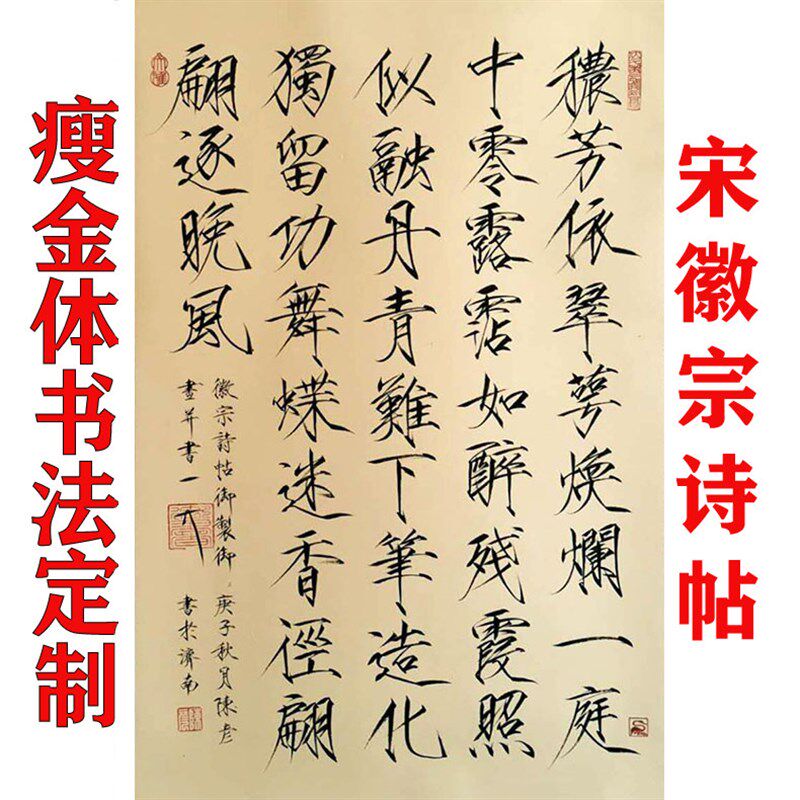 宋徽宗诗帖
穠芳依翠萼煥爛一庭
中零露霑如醉殘霞照
似融丹青難下筆造化
獨留功舞蝶迷香徑翩
翩逐晚風
徽宗詩帖御製御
畫并書
庚子秋月陳彦
書於濟南
瘦金体书法定制